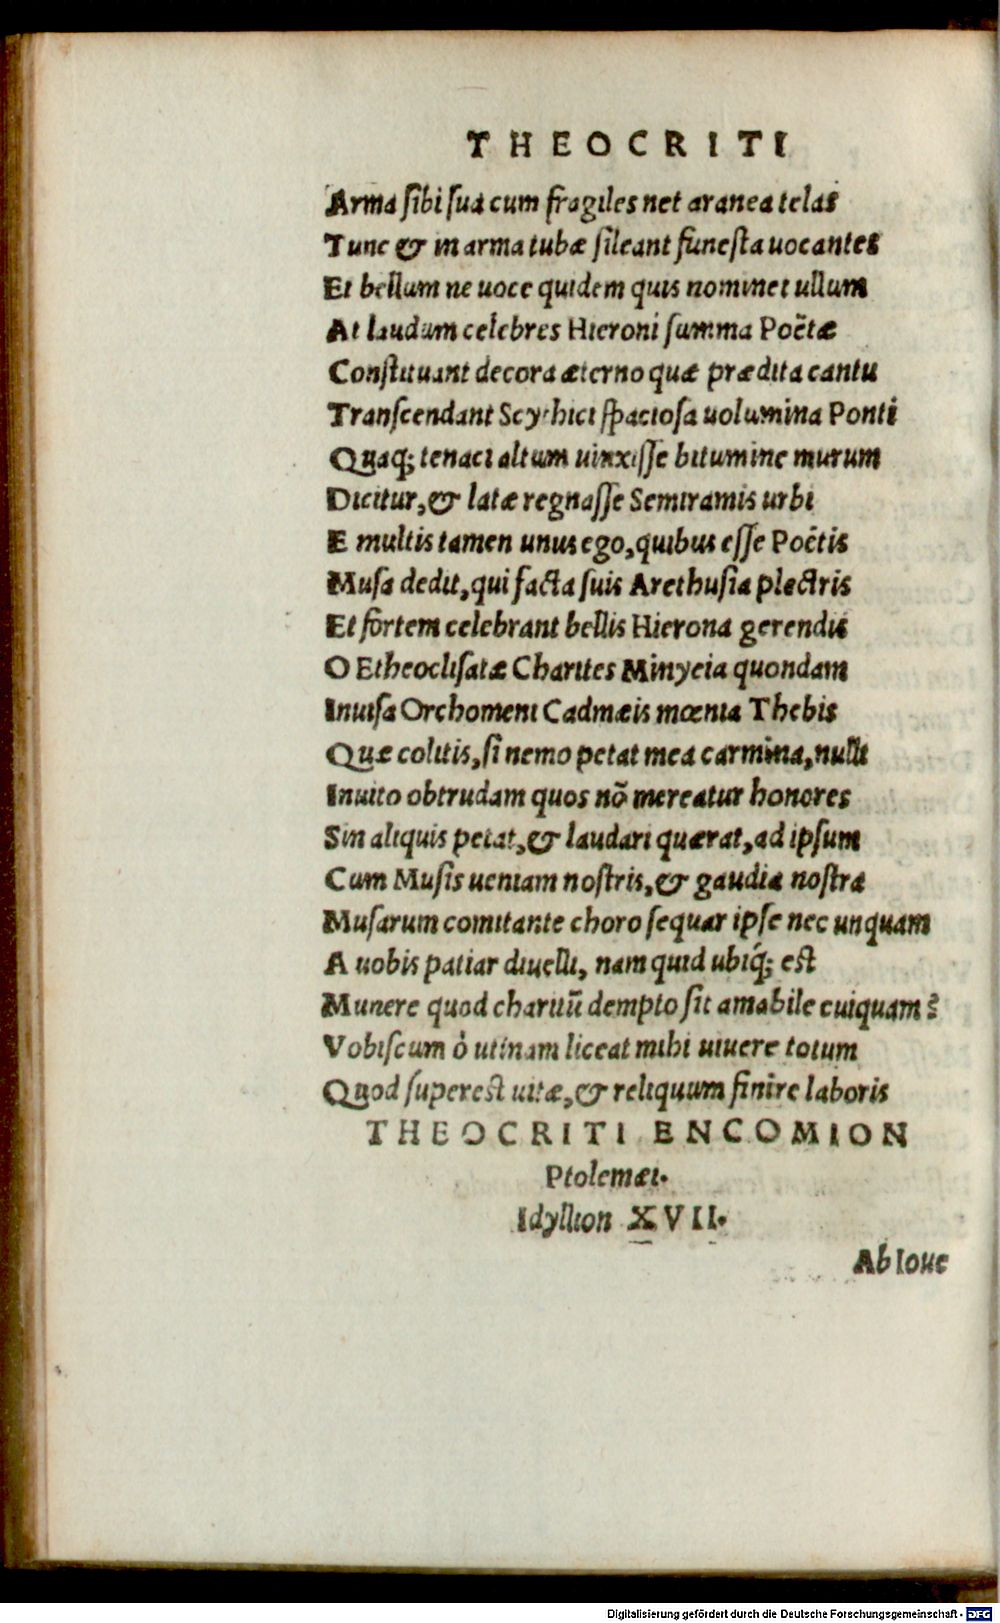 THEOCRITI
Arma sibi sua cum fragiles net aranea telas
Tunc & in arma tubæ sileant funesta uocantes
Et bellum ne uoce quidem quis nominet ullum
At laudum celebres Hieroni summa Poëtæ
Constituant decora æterno quæ prædita cantu
Transcendant Scythici spaciosa uolumina Ponti
Quaq; tenaci altum uinxisse bitumine murum
Dicitur, & latæ regnasse Semiramis urbi
E multis tamen unus ego, quibus esse Poëtis
Musa dedit, qui facta suis Arethusia plectris
Et fortem celebrant bellis Hierona gerendis
O Etheoclisatæ Charites Minyeia quondam
Inuisa Orchomeni Cadmæis mœnia Thebis
Quæ colitis, si nemo petat mea carmina, nulli
Inuito obtrudam quos nõ mereatur honores
Sin aliquis petat, & laudari quærat, ad ipsum
Cum Musis ueniam nostris, & gaudia nostra
Musarum comitante choro sequar ipse nec unquam
A uobis patiar diuelli, nam quid ubiq́; est
Munere quod charitũ dempto sit amabile cuiquam?
Vobiscum ò utinam liceat mihi uiuere totum
Quod superest uitæ, & reliquum finire laboris
THEOCRITI ENCOMION
Ptolemæi.
Idyllion XVII.
Ab Ioue
Digitalisierung gefördert durch die Deutsche Forschungsgemeinschaft - DFG